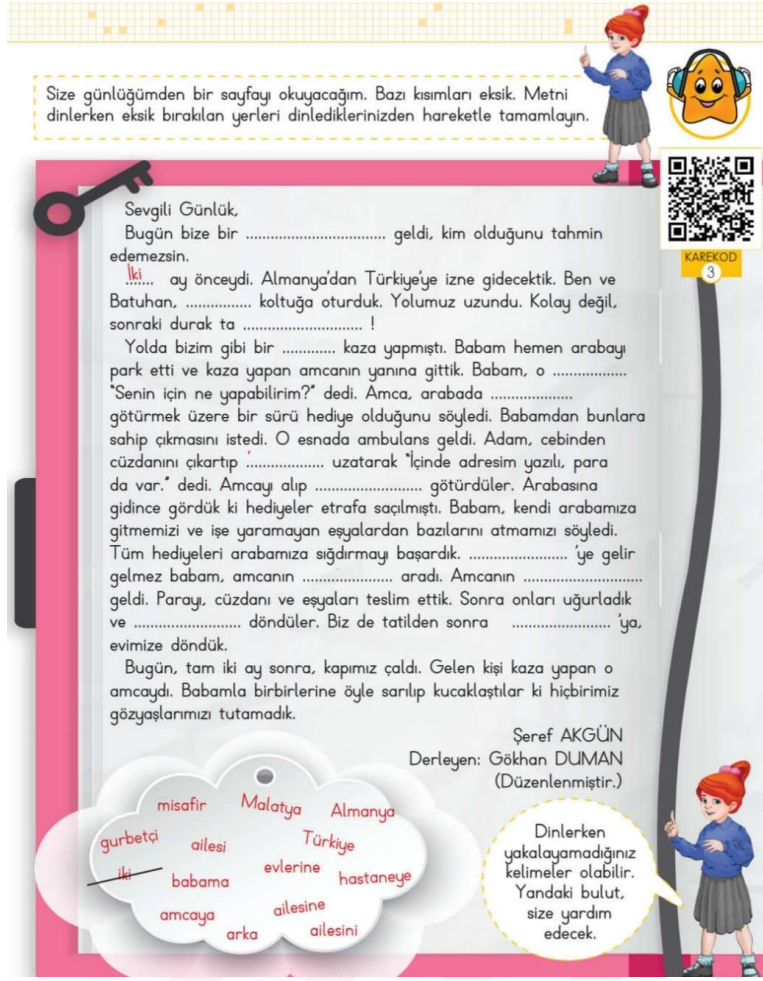 Size günlüğümden bir sayfayı okuyacağım. Bazı kısımları eksik. Metni
dinlerken eksik bırakılan yerleri dinlediklerinizden hareketle tamamlayın.
KAREKOD
3
Sevgili Günlük,
Bugün bize bir ................................ geldi, kim olduğunu tahmin
edemezsin.
İki...... ay önceydi. Almanya'dan Türkiye'ye izne gidecektik. Ben ve
Batuhan, ............... koltuğa oturduk. Yolumuz uzundu. Kolay değil,
sonraki durak ta ............................ !
Yolda bizim gibi bir ............ kaza yapmıştı. Babam hemen arabayı
park etti ve kaza yapan amcanın yanına gittik. Babam, o .................
"Senin için ne yapabilirim?" dedi. Amca, arabada ...................
götürmek üzere bir sürü hediye olduğunu söyledi. Babamdan bunlara
sahip çıkmasını istedi. O esnada ambulans geldi. Adam, cebinden
cüzdanını çıkartıp .................. uzatarak "İçinde adresim yazılı, para
da var." dedi. Amcayı alıp ......................... götürdüler. Arabasına
gidince gördük ki hediyeler etrafa saçılmıştı. Babam, kendi arabamıza
gitmemizi ve işe yaramayan eşyalardan bazılarını atmamızı söyledi.
Tüm hediyeleri arabamıza sığdırmayı başardık. ....................... 'ye gelir
gelmez babam, amcanın ..................... aradı. Amcanın ............................
geldi. Parayı, cüzdanı ve eşyaları teslim ettik. Sonra onları uğurladık
ve ......................... döndüler. Biz de tatilden sonra ....................... 'ya,
evimize döndük.
Bugün, tam iki ay sonra, kapımız çaldı. Gelen kişi kaza yapan o
amcaydı. Babamla birbirlerine öyle sarılıp kucaklaştılar ki hiçbirimiz
gözyaşlarımızı tutamadık.
Şeref AKGÜN
Derleyen: Gökhan DUMAN
(Düzenlenmiştir.)
misafir Malatya Almanya
gurbetçi ailesi Türkiye
iki babama evlerine hastaneye
amcaya ailesine
arka ailesini
Dinlerken
yakalayamadığınız
kelimeler olabilir.
Yandaki bulut,
size yardım
edecek.